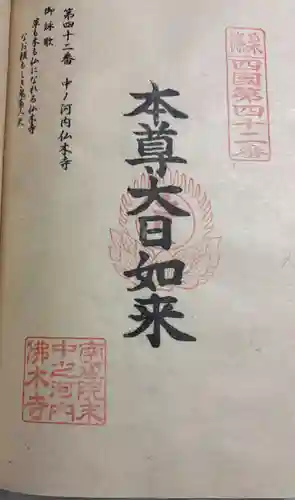 四国第四十二番
本尊大日如来
第四十二番 中ノ河内 仏木寺
御詠歌
草も木も仏になれる仏木寺
なお頼もしき鬼畜人天
中之河内
佛木寺